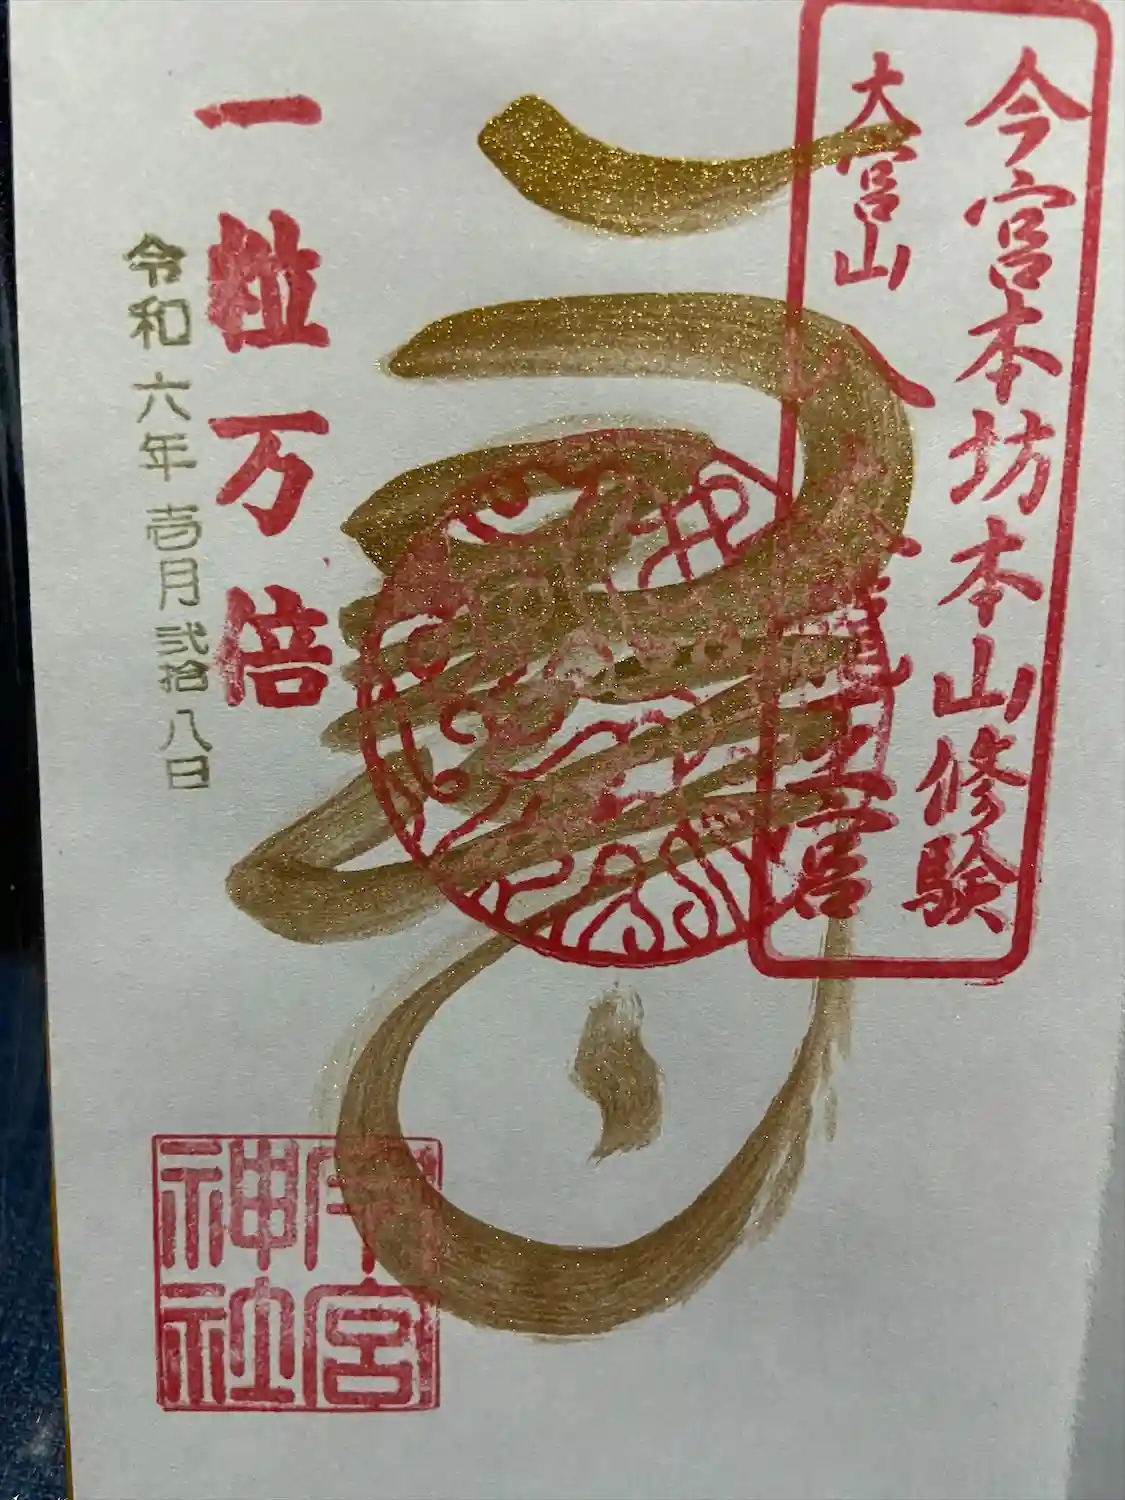 今宮本坊本山修験
大宮山 八大龍王宮
一粒万倍
令和六年壱月弐拾八日
今宮
神社